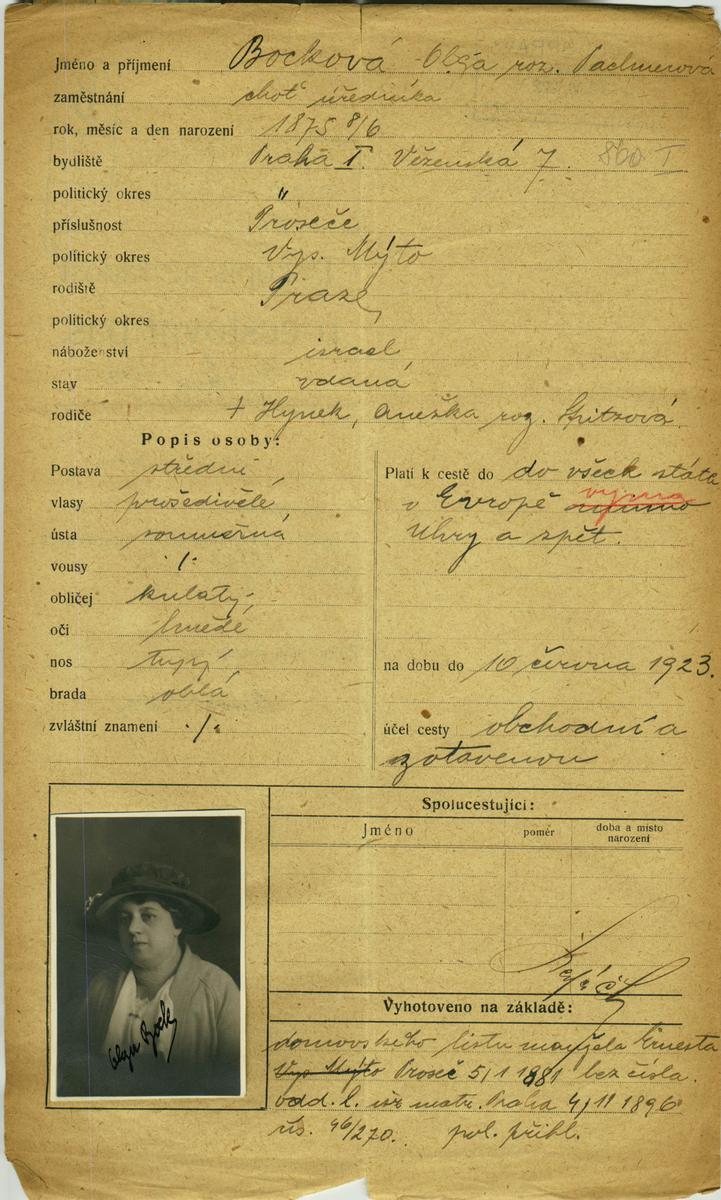 Jméno a příjmení Bocková Olga roz. Pachnerová
zaměstnání choť úředníka
rok, měsíc a den narození 1875 8/6
bydliště Praha I. Vězenská 7. 860 I
politický okres "
příslušnost Proseče
politický okres Vys. Mýto
rodiště Praze
politický okres
náboženství israel
stav vdaná
rodiče † Hynek, Anežka roz. Spitzová
Popis osoby:
Postava střední
vlasy prošedivělé
ústa souměrná
vousy ·/·
obličej kulatý
oči hnědé
nos tupý
brada oblá
zvláštní znamení ·/·
Platí k cestě do do všech států
v Evropě mimo vyjma
Uhry a zpět.
na dobu do 10 června 1923.
účel cesty obchodní a
zotavenou
Spolucestující:
Jméno poměr doba a místo narození
Vyhotoveno na základě:
domovského listu manžela Ernesta
Vys Mýto Proseč 5/1 1881 bez čísla.
odd. l. isr matr. Praha 4/11 1896
čís. 46/270. pol. přihl.
Olga Bock